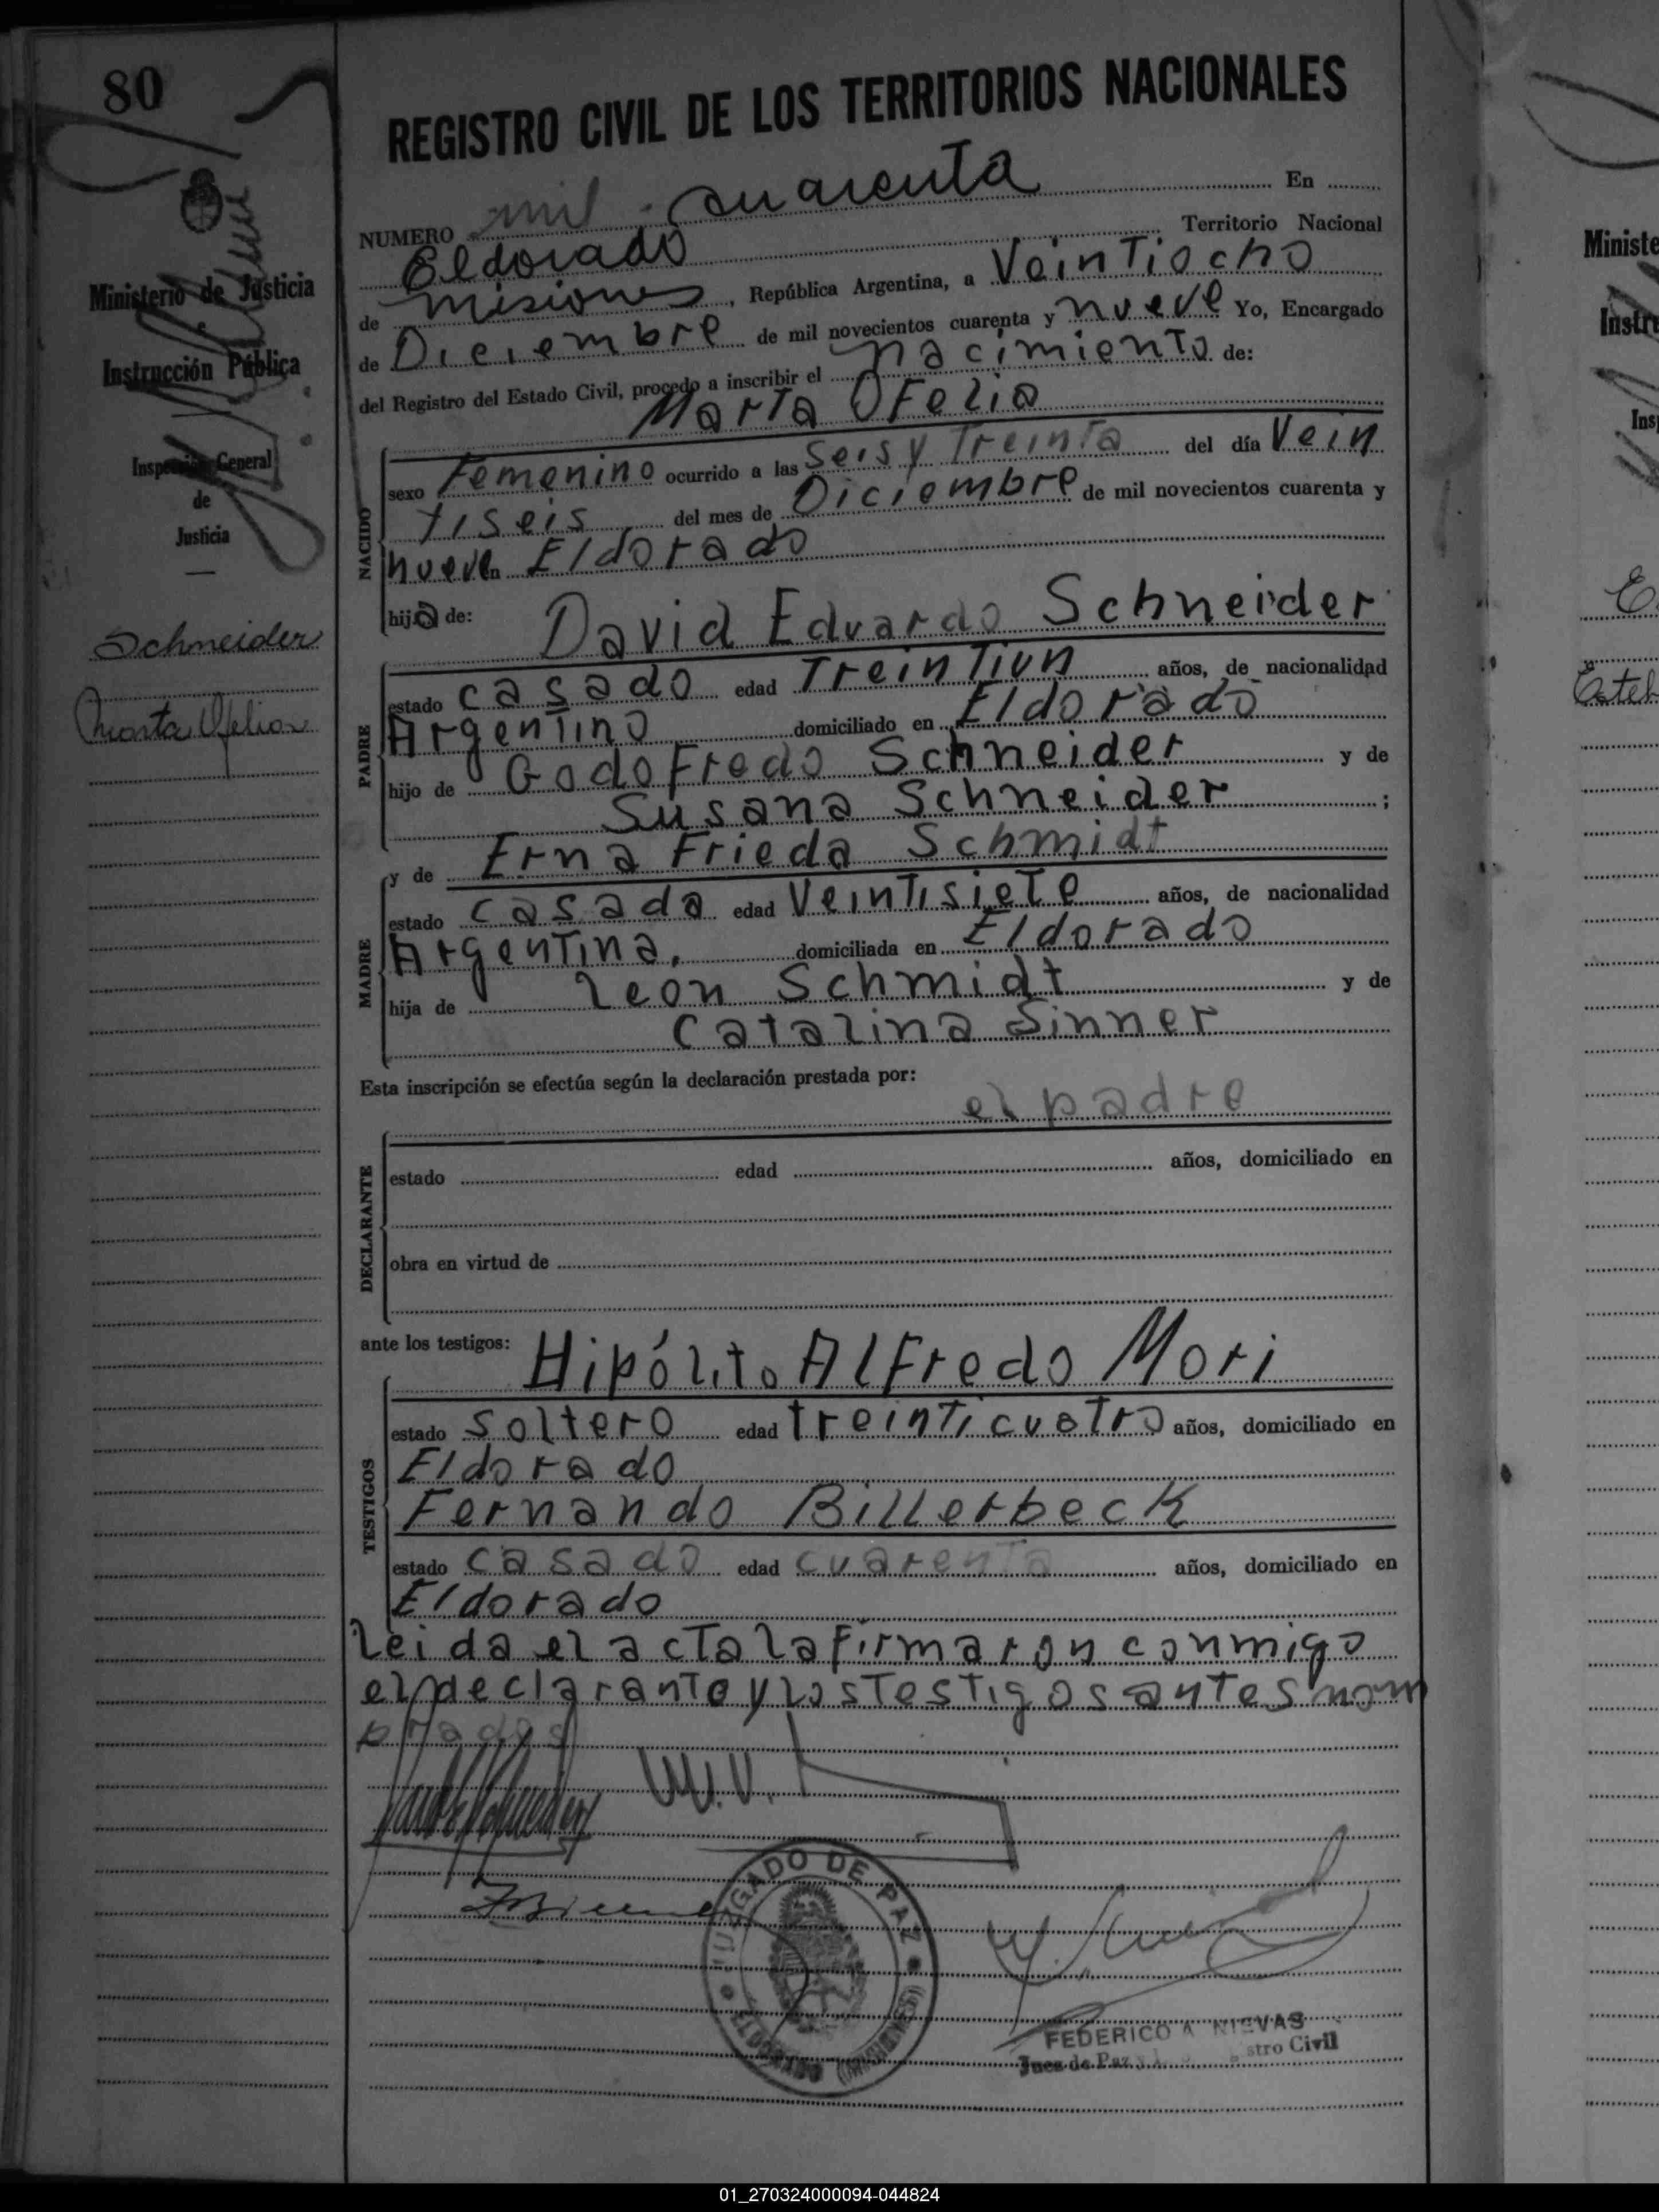 80
REGISTRO CIVIL DE LOS TERRITORIOS NACIONALES
NUMERO mil cuarenta En
Eldorado Territorio Nacional
de Misiones, República Argentina, a Veintiocho
de Diciembre de mil novecientos cuarenta y nueve Yo, Encargado
del Registro del Estado Civil, procedo a inscribir el nacimiento de:
Marta Ofelia
NACIDO
sexo Femenino ocurrido a las Seis y Treinta del día Vein
tiseis del mes de Diciembre de mil novecientos cuarenta y
nueve en Eldorado
hija de: David Eduardo Schneider
PADRE
estado casado edad Treintiun años, de nacionalidad
Argentino domiciliado en Eldorado
hijo de Godofredo Schneider y de
Susana Schneider ;
y de Erna Frieda Schmidt
MADRE
estado casada edad Veintisiete años, de nacionalidad
Argentina, domiciliada en Eldorado
hija de Leon Schmidt y de
Catalina Sinner
Esta inscripción se efectúa según la declaración prestada por:
el padre
DECLARANTE
estado edad años, domiciliado en
obra en virtud de
ante los testigos: Hipólito Alfredo Mori
TESTIGOS
estado soltero edad treinticuatro años, domiciliado en
Eldorado
Fernando Billerbeck
estado casado edad cuarenta años, domiciliado en
Eldorado
Leida el acta la firmaron conmigo
el declarante y los testigos antes nom
brados
JUZGADO DE PAZ
ELDORADO (MISIONES)
FEDERICO A NIEVAS
Juez de Paz stro Civil
Ministerio de Justicia
e
Instrucción Pública
Inspección General
de
Justicia
Schneider
Marta Ofelia
Ministe
Instru
Insp
01_270324000094-044824